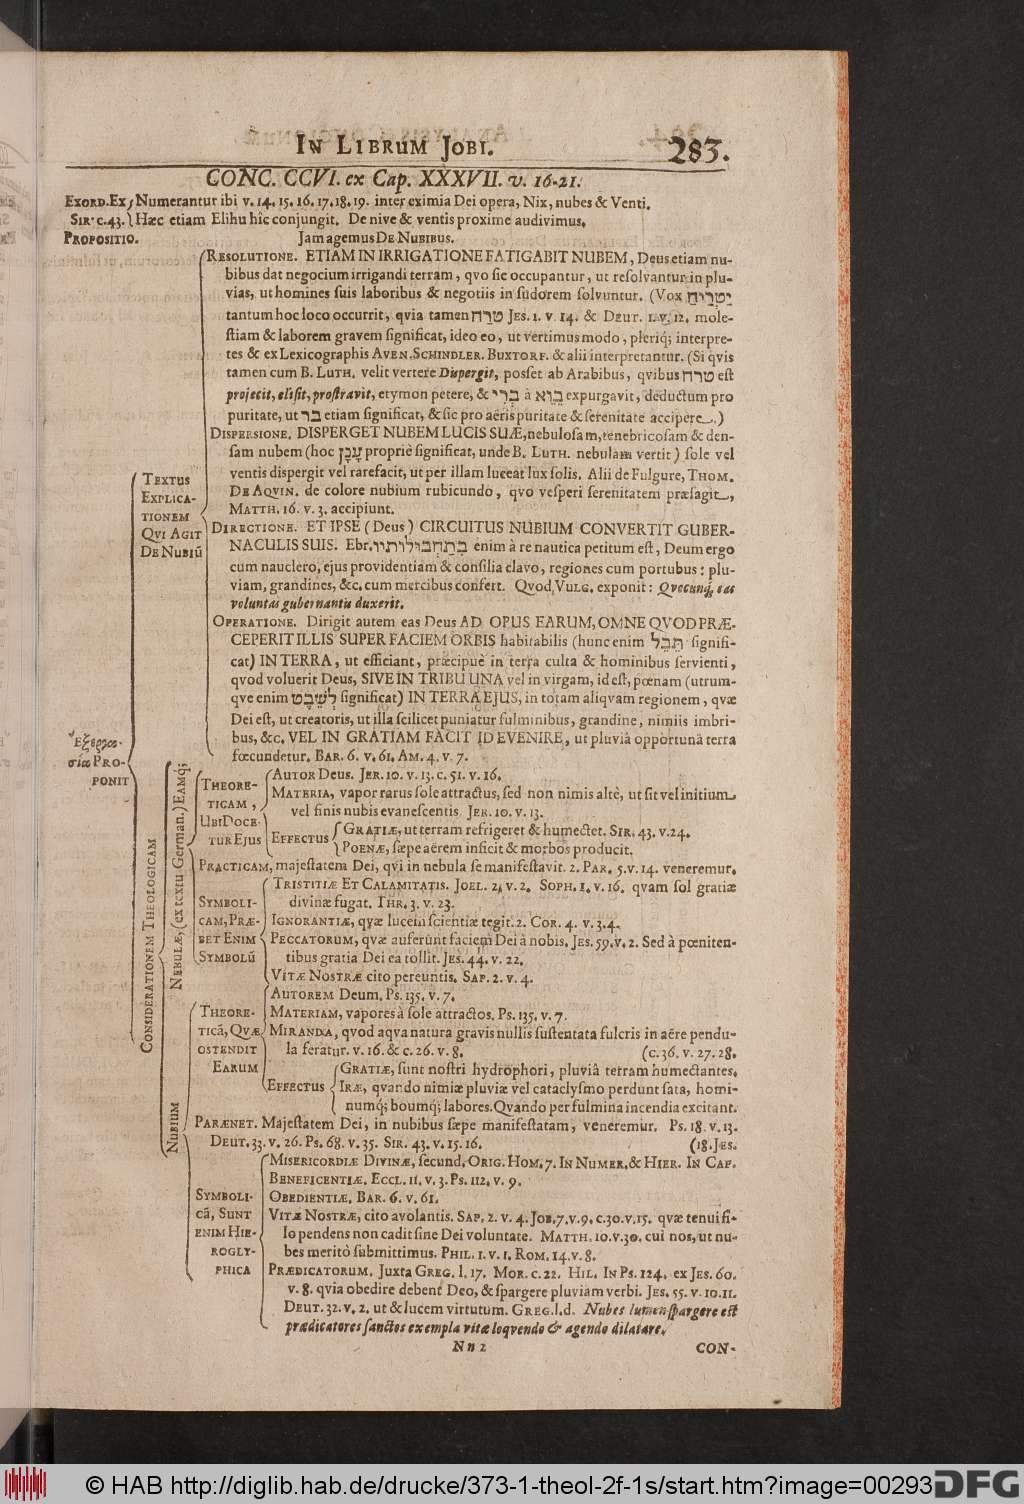 IN LIBRUM JOBI. 283.
CONC. CCVI. ex Cap. XXXVII. v. 16-21.
EXORD. Ex Numerantur ibi v. 14. 15. 16. 17. 18. 19. inter eximia Dei opera, Nix, nubes & Venti.
SIR. c. 43. Hæc etiam Elihu hîc conjungit. De nive & ventis proxime audivimus.
PROPOSITIO. Jam agemus DE NUBIBUS.
Ἐξεργασία PROPONIT
TEXTUS
EXPLICA-
TIONEM
QVI AGIT
DE NUBIŪ
RESOLUTIONE. ETIAM IN IRRIGATIONE FATIGABIT NUBEM, Deus etiam nu-
bibus dat negocium irrigandi terram, qvo sic occupantur, ut resolvantur in plu-
vias, ut homines suis laboribus & negotiis in sudorem solvuntur. (Vox יַטְרִיחַ
tantum hoc loco occurrit, qvia tamen טרח JES. 1. v. 14. & DEUT. 1. v. 12. mole-
stiam & laborem gravem significat, ideo eo, ut vertimus modo, pleriq; interpre-
tes & ex Lexicographis AVEN. SCHINDLER. BUXTORF. & alii interpretantur. (Si qvis
tamen cum B. LUTH. velit vertere Dispergit, posset ab Arabibus, qvibus טרח est
projecit, elisit, prostravit, etymon petere, & בְּרִי à expurgavit, deductum pro
puritate, ut בר etiam significat, & sic pro aëris puritate & serenitate accipere.)
DISPERSIONE. DISPERGET NUBEM LUCIS SUÆ, nebulosam, tenebricosam & den-
sam nubem (hoc עָנָן propriè significat, unde B. LUTH. nebulam vertit) sole vel
ventis dispergit vel rarefacit, ut per illam luceat lux solis. Alii de Fulgure, THOM.
DE AQVIN. de colore nubium rubicundo, qvo vesperi serenitatem præsagit,
MATTH. 16. v. 3. accipiunt.
DIRECTIONE. ET IPSE (Deus) CIRCUITUS NUBIUM CONVERTIT GUBER-
NACULIS SUIS. Ebr. בְּתַחְבּוּלוֹתָיו enim à re nautica petitum est, Deum ergo
cum nauclero, ejus providentiam & consilia clavo, regiones cum portubus: plu-
viam, grandines, &c. cum mercibus confert. Qvod VULG. exponit: Qvocunq, eas
voluntas gubernantis duxerit.
OPERATIONE. Dirigit autem eas Deus AD OPUS EARUM, OMNE QVOD PRÆ-
CEPERIT ILLIS SUPER FACIEM ORBIS habitabilis (hunc enim תֵּבֵל signifi-
cat) IN TERRA, ut efficiant, præcipuè in terra culta & hominibus servienti,
qvod voluerit Deus, SIVE IN TRIBU UNA vel in virgam, id est, pœnam (utrum-
qve enim לְשֵׁבֶט significat) IN TERRA EJUS, in totam aliqvam regionem, qvæ
Dei est, ut creatoris, ut illa scilicet puniatur fulminibus, grandine, nimiis imbri-
bus, &c. VEL IN GRATIAM FACIT ID EVENIRE, ut pluviâ opportunâ terra
fœcundetur. BAR. 6. v. 61. AM. 4. v. 7.
CONSIDERATIONEM THEOLOGICAM
NEBULÆ, (ex textu German.) EAMQ;
THEORE-
TICAM,
UBI DOCE-
TUR EJUS
AUTOR Deus. JER. 10. v. 13. c. 51. v. 16.
MATERIA, vapor rarus sole attractus, sed non nimis altè, ut sit vel initium
vel finis nubis evanescentis. JER. 10. v. 13.
EFFECTUS
GRATIÆ, ut terram refrigeret & humectet. SIR. 43. v. 24.
POENÆ, sæpe aërem inficit & morbos producit.
PRACTICAM, majestatem Dei, qvi in nebula se manifestavit. 2. PAR. 5. v. 14. veneremur.
SYMBOLI-
CAM, PRÆ-
BET ENIM
SYMBOLŪ
TRISTITIÆ ET CALAMITATIS. JOEL. 2. v. 2. SOPH. 1. v. 16. qvam sol gratiæ
divinæ fugat. THR. 3. v. 23.
IGNORANTIÆ, qvæ lucem scientiæ tegit. 2. COR. 4. v. 3. 4.
PECCATORUM, qvæ auferunt faciem Dei à nobis. JES. 59. v. 2. Sed à pœniten-
tibus gratia Dei ea tollit. JES. 44. v. 22.
VITÆ NOSTRÆ cito pereuntis. SAP. 2. v. 4.
NUBIUM
THEORE-
TICĀ, QVÆ
OSTENDIT
EARUM
AUTOREM Deum. Ps. 135. v. 7.
MATERIAM, vapores à sole attractos. Ps. 135. v. 7.
MIRANDA, qvod aqva natura gravis nullis sustentata fulcris in aëre pendu-
la feratur. v. 16. & c. 26. v. 8. (c. 36. v. 27. 28.
EFFECTUS
GRATIÆ, sunt nostri hydrophori, pluviâ terram humectantes.
IRÆ, qvando nimiæ pluviæ vel cataclysmo perdunt sata, homi-
numq; boumq; labores. Qvando per fulmina incendia excitant.
PARÆNET. Majestatem Dei, in nubibus sæpe manifestatam, veneremur. Ps. 18. v. 13.
DEUT. 33. v. 26. Ps. 68. v. 35. SIR. 43. v. 15. 16. (18. JES.
SYMBOLI-
CĀ, SUNT
ENIM HIE-
ROGLY-
PHICA
MISERICORDIÆ DIVINÆ, secund. ORIG. HOM. 7. IN NUMER. & HIER. IN CAP.
BENEFICENTIÆ. ECCL. 11. v. 3. Ps. 112. v. 9.
OBEDIENTIÆ. BAR. 6. v. 61.
VITÆ NOSTRÆ, cito avolantis. SAP. 2. v. 4. JOB. 7. v. 9. c. 30. v. 15. qvæ tenui fi-
lo pendens non cadit sine Dei voluntate. MATTH. 10. v. 30. cui nos, ut nu-
bes meritò submittimus. PHIL. 1. v. 1. ROM. 14. v. 8.
PRÆDICATORUM. Juxta GREG. l. 17. MOR. c. 22. HIL. IN Ps. 124. ex JES. 60.
v. 8. qvia obedire debent Deo, & spargere pluviam verbi. JES. 55. v. 10. 11.
DEUT. 32. v. 2. ut & lucem virtutum. GREG. l. d. Nubes lumen spargere est
prædicatores sanctos exempla vitæ loqvendo & agendo dilatare.
Nn 2 CON-
© HAB http://diglib.hab.de/drucke/373-1-theol-2f-1s/start.htm?image=00293 DFG